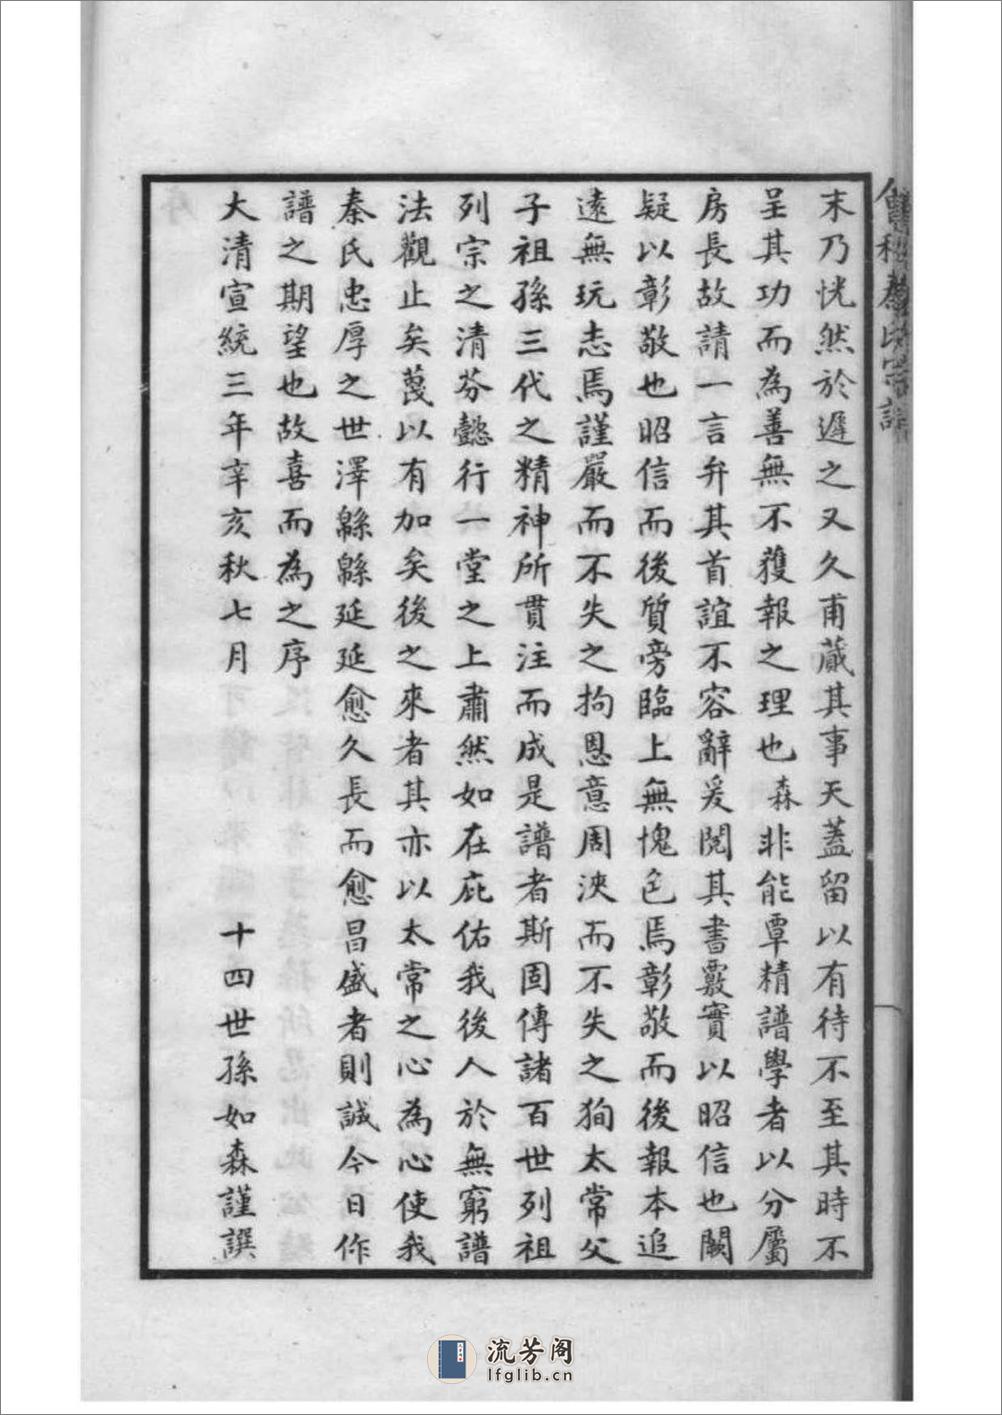 會稽秦氏宗譜
末乃恍然於遲之又久甫蕆其事天蓋留以有待不至其時不
呈其功而為善無不獲報之理也森非能覃精譜學者以分屬
房長故請一言弁其首誼不容辭爰閱其書覈實以昭信也闕
疑以彰敬也昭信而後質旁臨上無愧色焉彰敬而後報本追
遠無玩志焉謹嚴而不失之拘恩意周浹而不失之狥太常父
子祖孫三代之精神所貫注而成是譜者斯固傳諸百世列祖
列宗之清芬懿行一堂之上肅然如在庇佑我後人於無窮譜
法觀止矣蔑以有加矣後之來者其亦以太常之心為心使我
秦氏忠厚之世澤緜緜延延愈久長而愈昌盛者則誠今日作
譜之期望也故喜而為之序
大清宣統三年辛亥秋七月　十四世孫如森謹譔
流芳阁
lfglib.cn